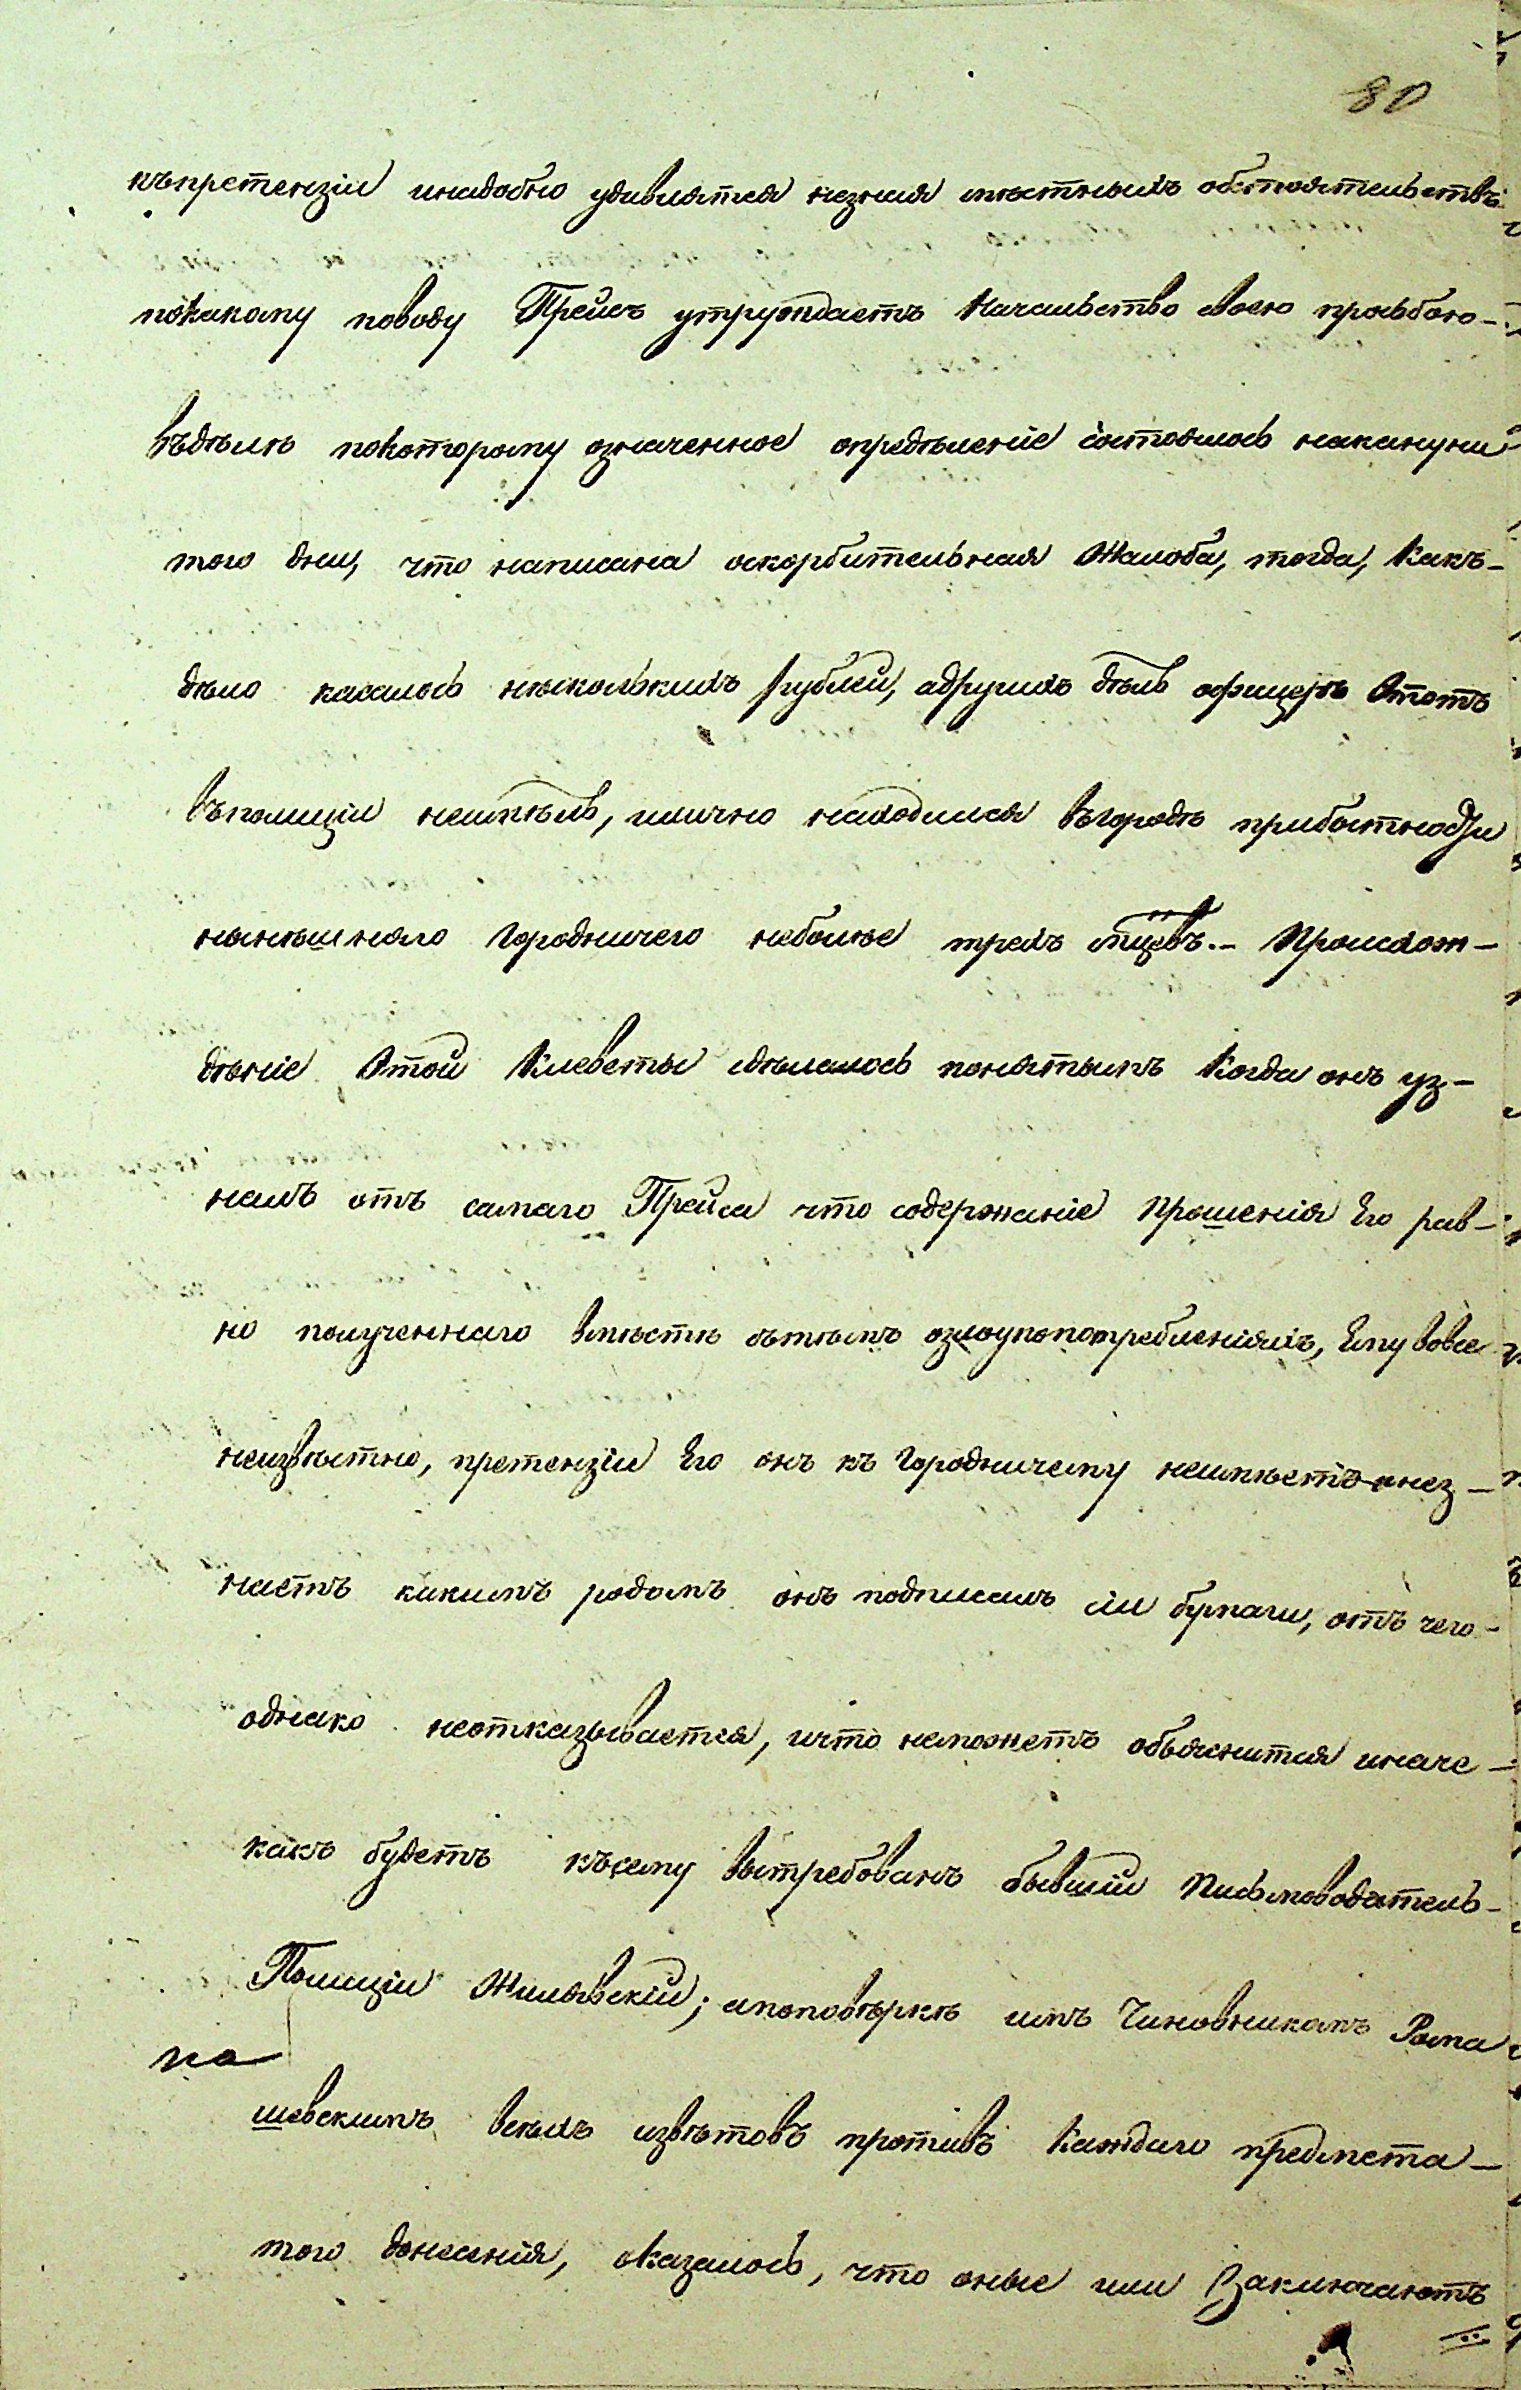 80
къпретензіи инадобно удивлятся незная мѣстныхъ обстоятельствъ
покакому поводу Прейсъ утруждаетъ Начальство своею прозьбою-
въдѣлѣ покоторому означенное опредѣленіе состоялось наканунѣ
того дни, что написана оскорбительная Жалоба, тогда, какъ-
дѣло касалось нѣсколькихъ рублей, адругихъ дѣлъ офицеръ Этотъ
въполиціи неимѣлъ, илично находился въгородѣ прибытности
нынѣшняго Городничего неболѣе трехъ мцевъ.- Происхож-
деніе Этой Клеветы сдѣлалось понятнымъ Когда онъ уз-
налъ отъ самаго Прейса что содержаніе Прошенія Его рав-
но полученнаго вмѣстѣ сътѣмъ озлоупопотребленіяхъ, Ему вовсе
неизвѣстно, претензіи Его онъ къ Городничему неимѣетъ инез-
наетъ какимъ родомъ онъ подписалъ сіи бумаги, отъ чего-
однако неотказывается, ичто неможетъ объяснится иначе-
какъ будетъ късему вытребованъ бывшій Письмоводитель-
Полиціи Жилявскій; ипоповѣркѣ имъ Чиновникомъ Рома
на
шевскимъ всѣхъ извѣтовъ противъ Каждаго предмета-
того донесенія, оказалось, что оные или Заключаютъ